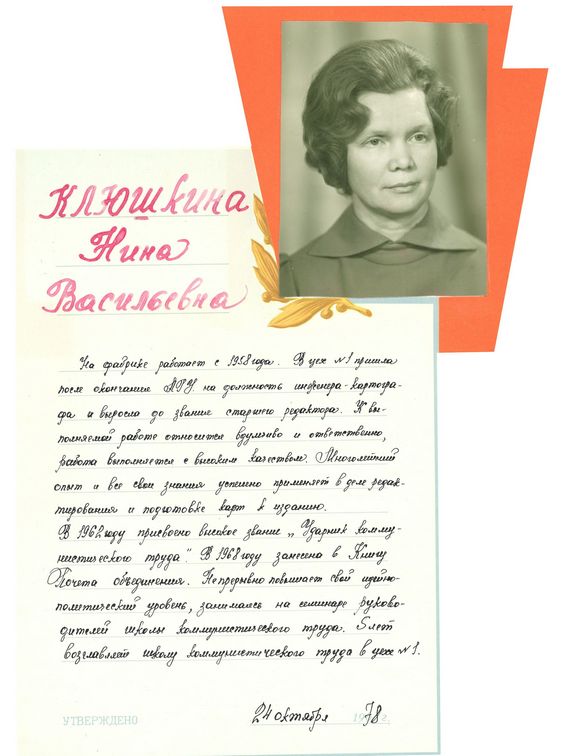 Клюшкина
Нина
Васильевна
На фабрике работает с 1958 года. В цех №1 пришла
после окончания ЛГУ на должность инженера-картогра-
фа и выросла до звания старшего редактора. К вы-
полняемой работе относится вдумчиво и ответственно,
работа выполняется с высоким качеством. Многолетний
опыт и все свои знания успешно применяет в деле редак-
тирования и подготовке карт к изданию.
В 1962 году присвоено высокое звание „Ударник комму-
нистического труда". В 1968 году занесена в Книгу
Почета объединения. Непрерывно повышает свой идейно-
политический уровень, занимаясь на семинаре руково-
дителей школы коммунистического труда. 5 лет
возглавляет школу коммунистического труда в цехе №1.
УТВЕРЖДЕНО 24 октября 1978 г.